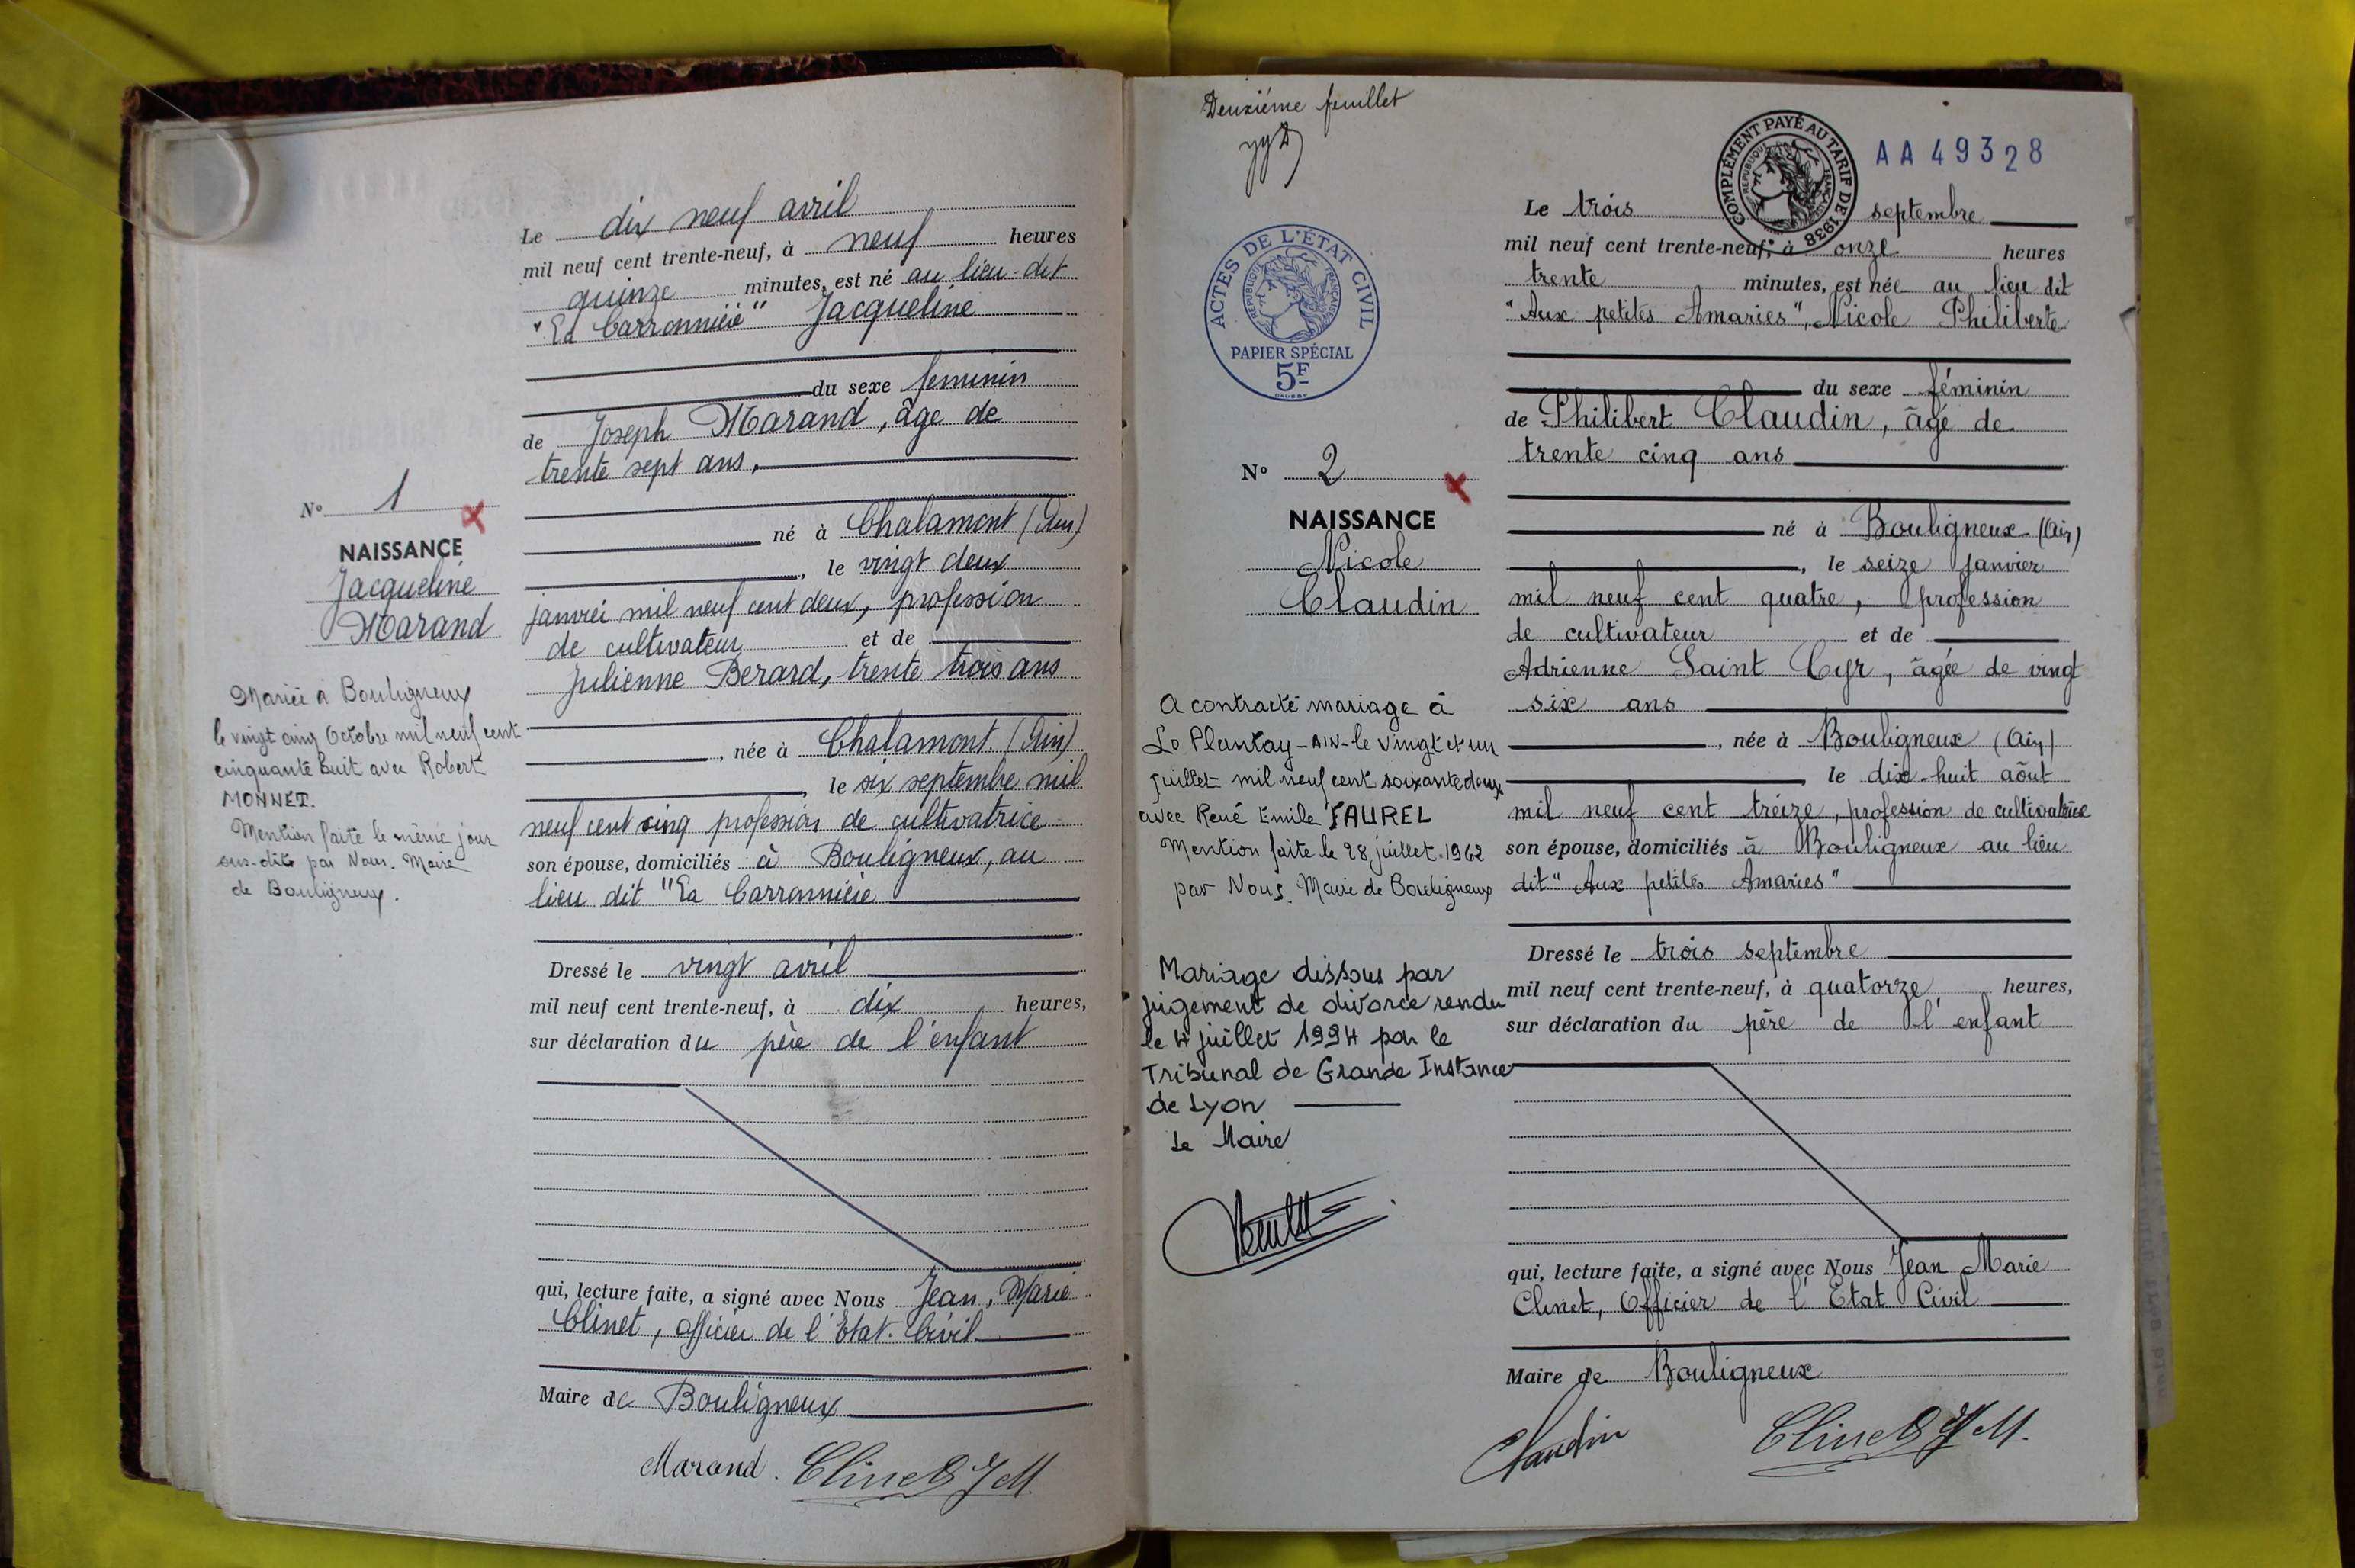 Le dix neuf avril
mil neuf cent trente-neuf, à neuf heures
quinze minutes, est né au lieu-dit
"La Carronnière" Jacqueline
du sexe feminin
de Joseph Marand, âge de
trente sept ans,
né à Chalamont (Ain)
, le vingt deux
janvier mil neuf cent deux, profession
de cultivateur et de
Julienne Berard, trente trois ans
, née à Chalamont (Ain)
, le six septembre mil
neuf cent cinq profession de cultivatrice
son épouse, domiciliés à Bouligneux, au
lieu dit "La Carronnière
Dressé le vingt avril
mil neuf cent trente-neuf, à dix heures,
sur déclaration du père de l'enfant
qui, lecture faite, a signé avec Nous Jean, Marie
Clinet, officier de l'Etat. Civil
Maire de Bouligneux
Marand. Clinet J M
N° 1
NAISSANCE
Jacqueline
Marand
Mariée à Bouligneux
le vingt cinq Octobre mil neuf cent
cinquante huit avec Robert
MONNET.
Mention faite le même jour
sus-dit par Nous. Maire
de Bouligneux.
Deuxième feuillet
ACTES DE L'ÉTAT CIVIL
RÉPUBLIQUE FRANÇAISE
PAPIER SPÉCIAL
5F
N° 2
NAISSANCE
Nicole
Claudin
A contracté mariage à
Le Plantay - AIN - le vingt et un
juillet mil neuf cent soixante deux
avec René Emile FAUREL
Mention faite le 28 juillet 1962
par Nous. Maire de Bouligneux
Mariage dissous par
jugement de divorce rendu
le 4 juillet 1994 par le
Tribunal de Grande Instance
de Lyon
Le Maire
COMPLÉMENT PAYÉ AU TARIF DE 1938
RÉPUBLIQUE FRANÇAISE
AA49328
Le trois septembre
mil neuf cent trente-neuf, à onze heures
trente minutes, est née au lieu dit
"Aux petites Amaries", Nicole Philiberte
du sexe féminin
de Philibert Claudin, âgé de
trente cinq ans
né à Bouligneux (Ain)
, le seize janvier
mil neuf cent quatre, profession
de cultivateur et de
Adrienne Saint Cyr, âgée de vingt
six ans
, née à Bouligneux (Ain)
le dix-huit août
mil neuf cent treize, profession de cultivatrice
son épouse, domiciliés à Bouligneux au lieu
dit "Aux petites Amaries"
Dressé le trois septembre
mil neuf cent trente-neuf, à quatorze heures,
sur déclaration du père de l'enfant
qui, lecture faite, a signé avec Nous Jean Marie
Clinet, Officier de l'Etat Civil
Maire de Bouligneux
Claudin Clinet J M.